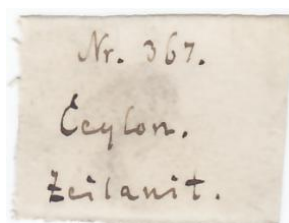 Nr. 367.
Ceylon.
Zeilanit.